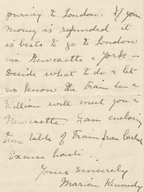 journey to London. If your
money is refunded it
is best to go to London
via Newcastle & York -
Decide what to do & let
us know the train &
William will meet you
Newcastle. I am enclosing
time table of Train from
Excuse haste.
Yours sincerely
Marian Kennedy